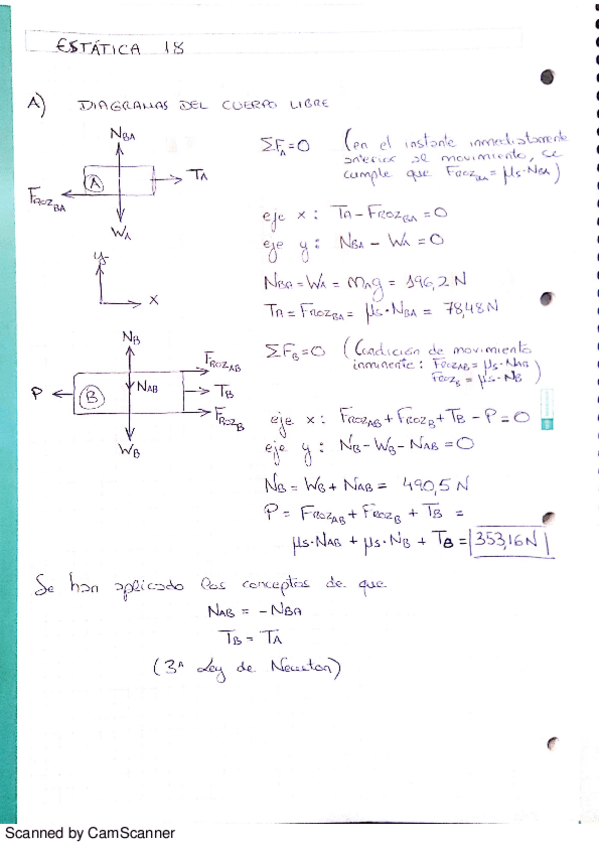 ESTÁTICA 18
A) DIAGRAMAS DEL CUERPO LIBRE
NBA
A
TA
FROZBA
WA
y
x
ΣFA=0 (en el instante inmediatamente
anterior al movimiento, se
cumple que FROZBA = μs·NBA)
eje x: TA - FROZBA = 0
eje y: NBA - WA = 0
NBA = WA = mAg = 196,2 N
TA = FROZBA = μs·NBA = 78,48 N
NB
FROZAB
NAB
P
B
TB
FROZB
WB
ΣFB=0 (Condición de movimiento
inminente: FROZAB = μs·NAB
FROZB = μs·NB)
eje x: FROZAB + FROZB + TB - P = 0
eje y: NB - WB - NAB = 0
NB = WB + NAB = 490,5 N
P = FROZAB + FROZB + TB =
μs·NAB + μs·NB + TB = 353,16 N
Se han aplicado los conceptos de que
NAB = -NBA
TB = TA
(3ª Ley de Newton)
Scanned by CamScanner